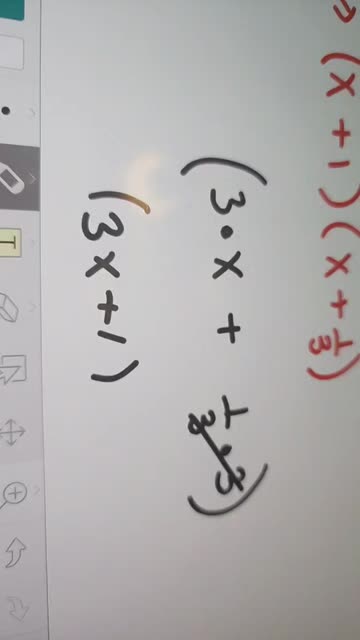 → (x + 1)(x + 1/3)
(3 • x + 1/3 • 3)
(3x + 1)
T